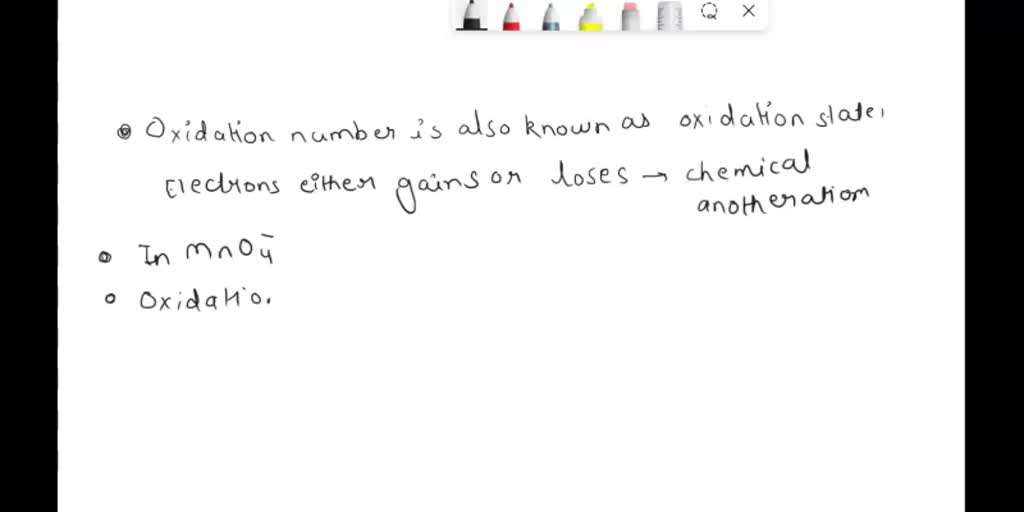 Oxidation number is also known as oxidation state,
Electrons either gains or loses → chemical
anotheration
In MnO4-
Oxidatio.